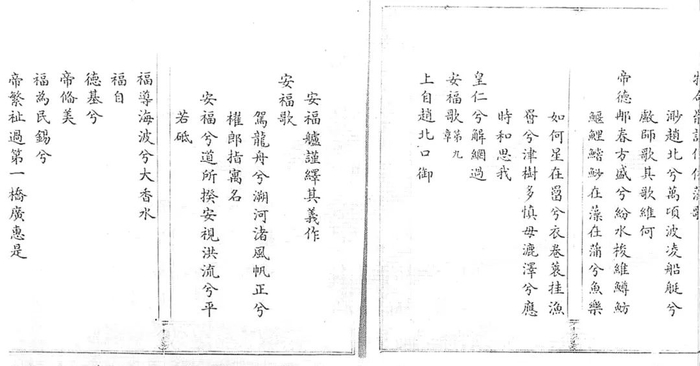 渺趙北兮萬頃波凌船艇兮
師歌其歌維何
帝德邮春方盛兮紛水梭維鱒魴
鰋鯉鰌魦在藻在蒲兮魚樂
如何星在罶兮衣卷蓑挂漁
罾兮津樹多慎毋漉澤兮應
時和思我
皇仁兮解網過
安福歌第九章
上自趙北口御
安福艫謹繹其義作
安福歌
駕龍舟兮溯河渚風帆正兮
櫂郎指寓名
安福兮道所揆安視洪流兮平
若砥
福導海波兮大香水
福自
德基兮
帝脩美
福為民錫兮
帝繁祉過第一橋廣惠是